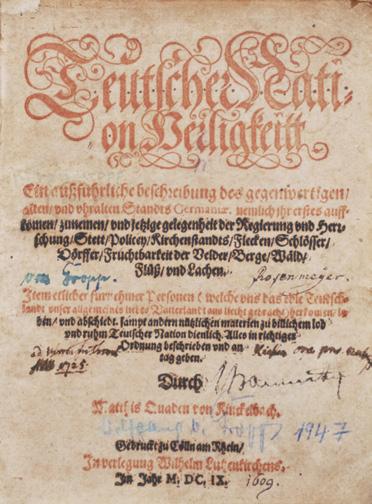 Teutscher Nati-
on Herligkeitt
Ein außführliche beschreibung des gegenwertigen/
alten/ vnd vhralten Standts Germaniæ. nemlich ihr erstes auff-
komen/ zunemen/ vnd jetzige gelegenheit der Regierung vnd Herr-
schung/ Stett/ Policey/ Kirchenstandts/ Flecken/ Schlösser/
Dörffer/ Fruchtbarkeit der Velder/ Berge/ Wäld/
Flüß/ vnd Lachen.
von Gropp. Rosenmeyer.
Item etlicher fürnehmer Personen welche vns das edle Teutsch-
landt vnser allgemeines liebes Vatterlandt ans liecht gebracht
ben/ vnd abschiedt. sampt andern nützlichen materien zu billichem lob
vnd ruhm Teutscher Nation dienlich. Alles in richtiger
Ordnung beschrieben vnd an
tag geben.
Durch
Matthis Quaden von Kinckelbach.
1947
Gedruckt zu Cölln am Rhein/
In verlegung Wilhelm Lutzenkirchens.
Im Jahr M. DC. IX. 1609.